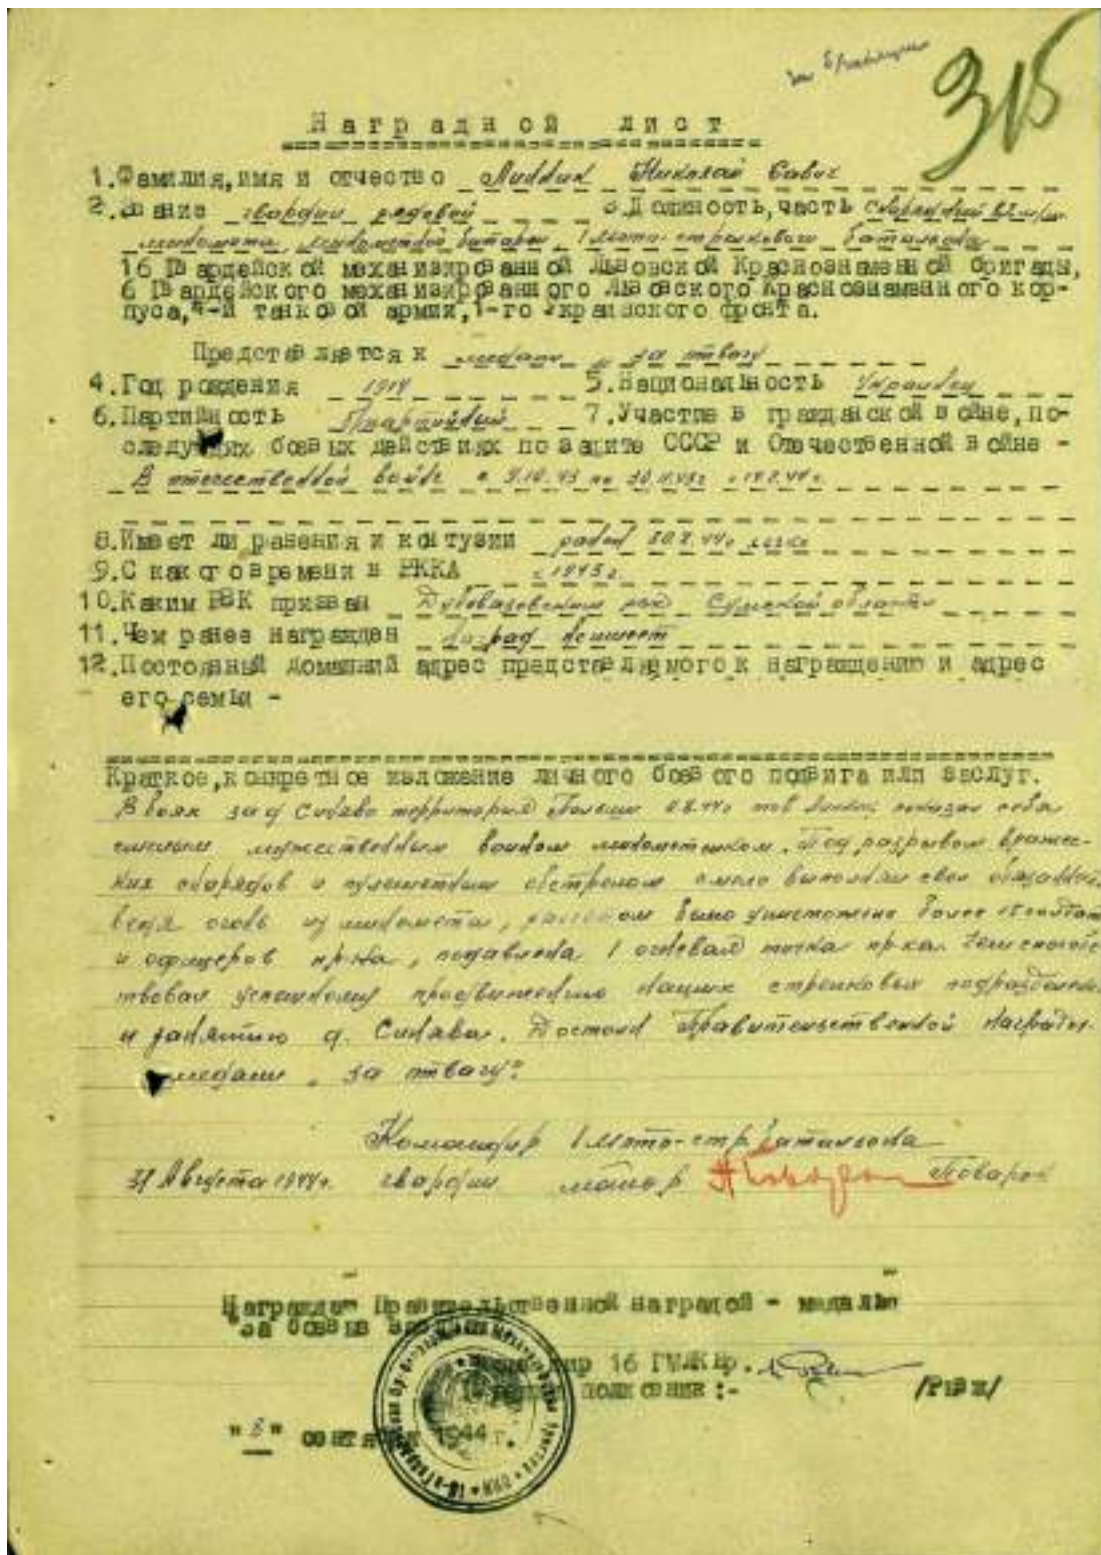 315
Наградной лист
1. Фамилия, имя и отчество Николай Савич
2. Звание гвардии рядовой 3. Должность, часть
миномета минометной батареи 1 мото-стрелкового батальона
16 Гвардейской механизированной Львовской Краснознаменной бригады,
6 Гвардейского механизированного Львовского Краснознаменного кор-
пуса, 4-й танковой армии, 1-го Украинского фронта.
Представляется к медали „за отвагу
4. Год рождения 1914 5. Национальность Украинец
6. Партийность 7. Участие в гражданской войне, по-
следующих боевых действиях по защите СССР и Отечественной войне -
В отечественной войне с 9.10.43 по 30.11.43г с
8. Имеет ли ранения и контузии ранен легко
9. С какого времени в РККА с 1943г.
10. Каким РВК призван Сумской области
11. Чем ранее награжден наград не имеет
12. Постоянный домашний адрес представляемого к награждению и адрес
его семьи -
Краткое, конкретное изложение личного боевого подвига или заслуг.
В боях за д территория Польши тов показал себя
смелым мужественным воином минометчиком. Под разрывом вражес-
ких снарядов и пулеметным обстрелом смело выполнял свои
ведя огонь из миномета, расчетом было уничтожено более солдат
и офицеров пр-ка, подавлена 1 огневая точка пр-ка. Чем способс
твовал успешному продвижению наших стрелковых подразделен
и занятию д. Достоин Правительственной награды
медали „за отвагу".
Командир 1 мото-стр батальона
31 Августа 1944г. гвардии майор
Награжден Правительственной наградой - медалью
"за боевые
Командир 16 ГМЛКБр.
полковник :-
"8" сентября 1944 г.